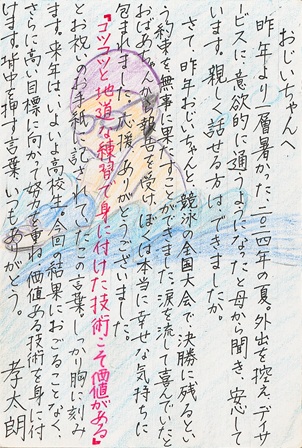 おじいちゃんへ
昨年より一層暑かった二〇二四年の夏。外出を控え、デイサ
ービスに意欲的に通うようになったと母から聞き、安心して
います。親しく話せる方はできましたか。
さて、昨年おじいちゃんと、競泳の全国大会で決勝に残るとい
う約束を無事に果たすことができました。涙を流して喜んでいたと
おばあちゃんから報告を受け、ぼくは本当に幸せな気持ちに
包まれました。応援、ありがとうございました。
『コツコツと地道な練習で身に付けた技術こそ価値がある』
とお祝いのお手紙に記されていたこの言葉。しっかり胸に刻み
ます。来年は、いよいよ高校生。今回の結果におごることなく、
さらに高い目標に向かって努力を重ね、価値ある技術を身に付
けます。背中を押す言葉、いつもありがとう。
孝太朗